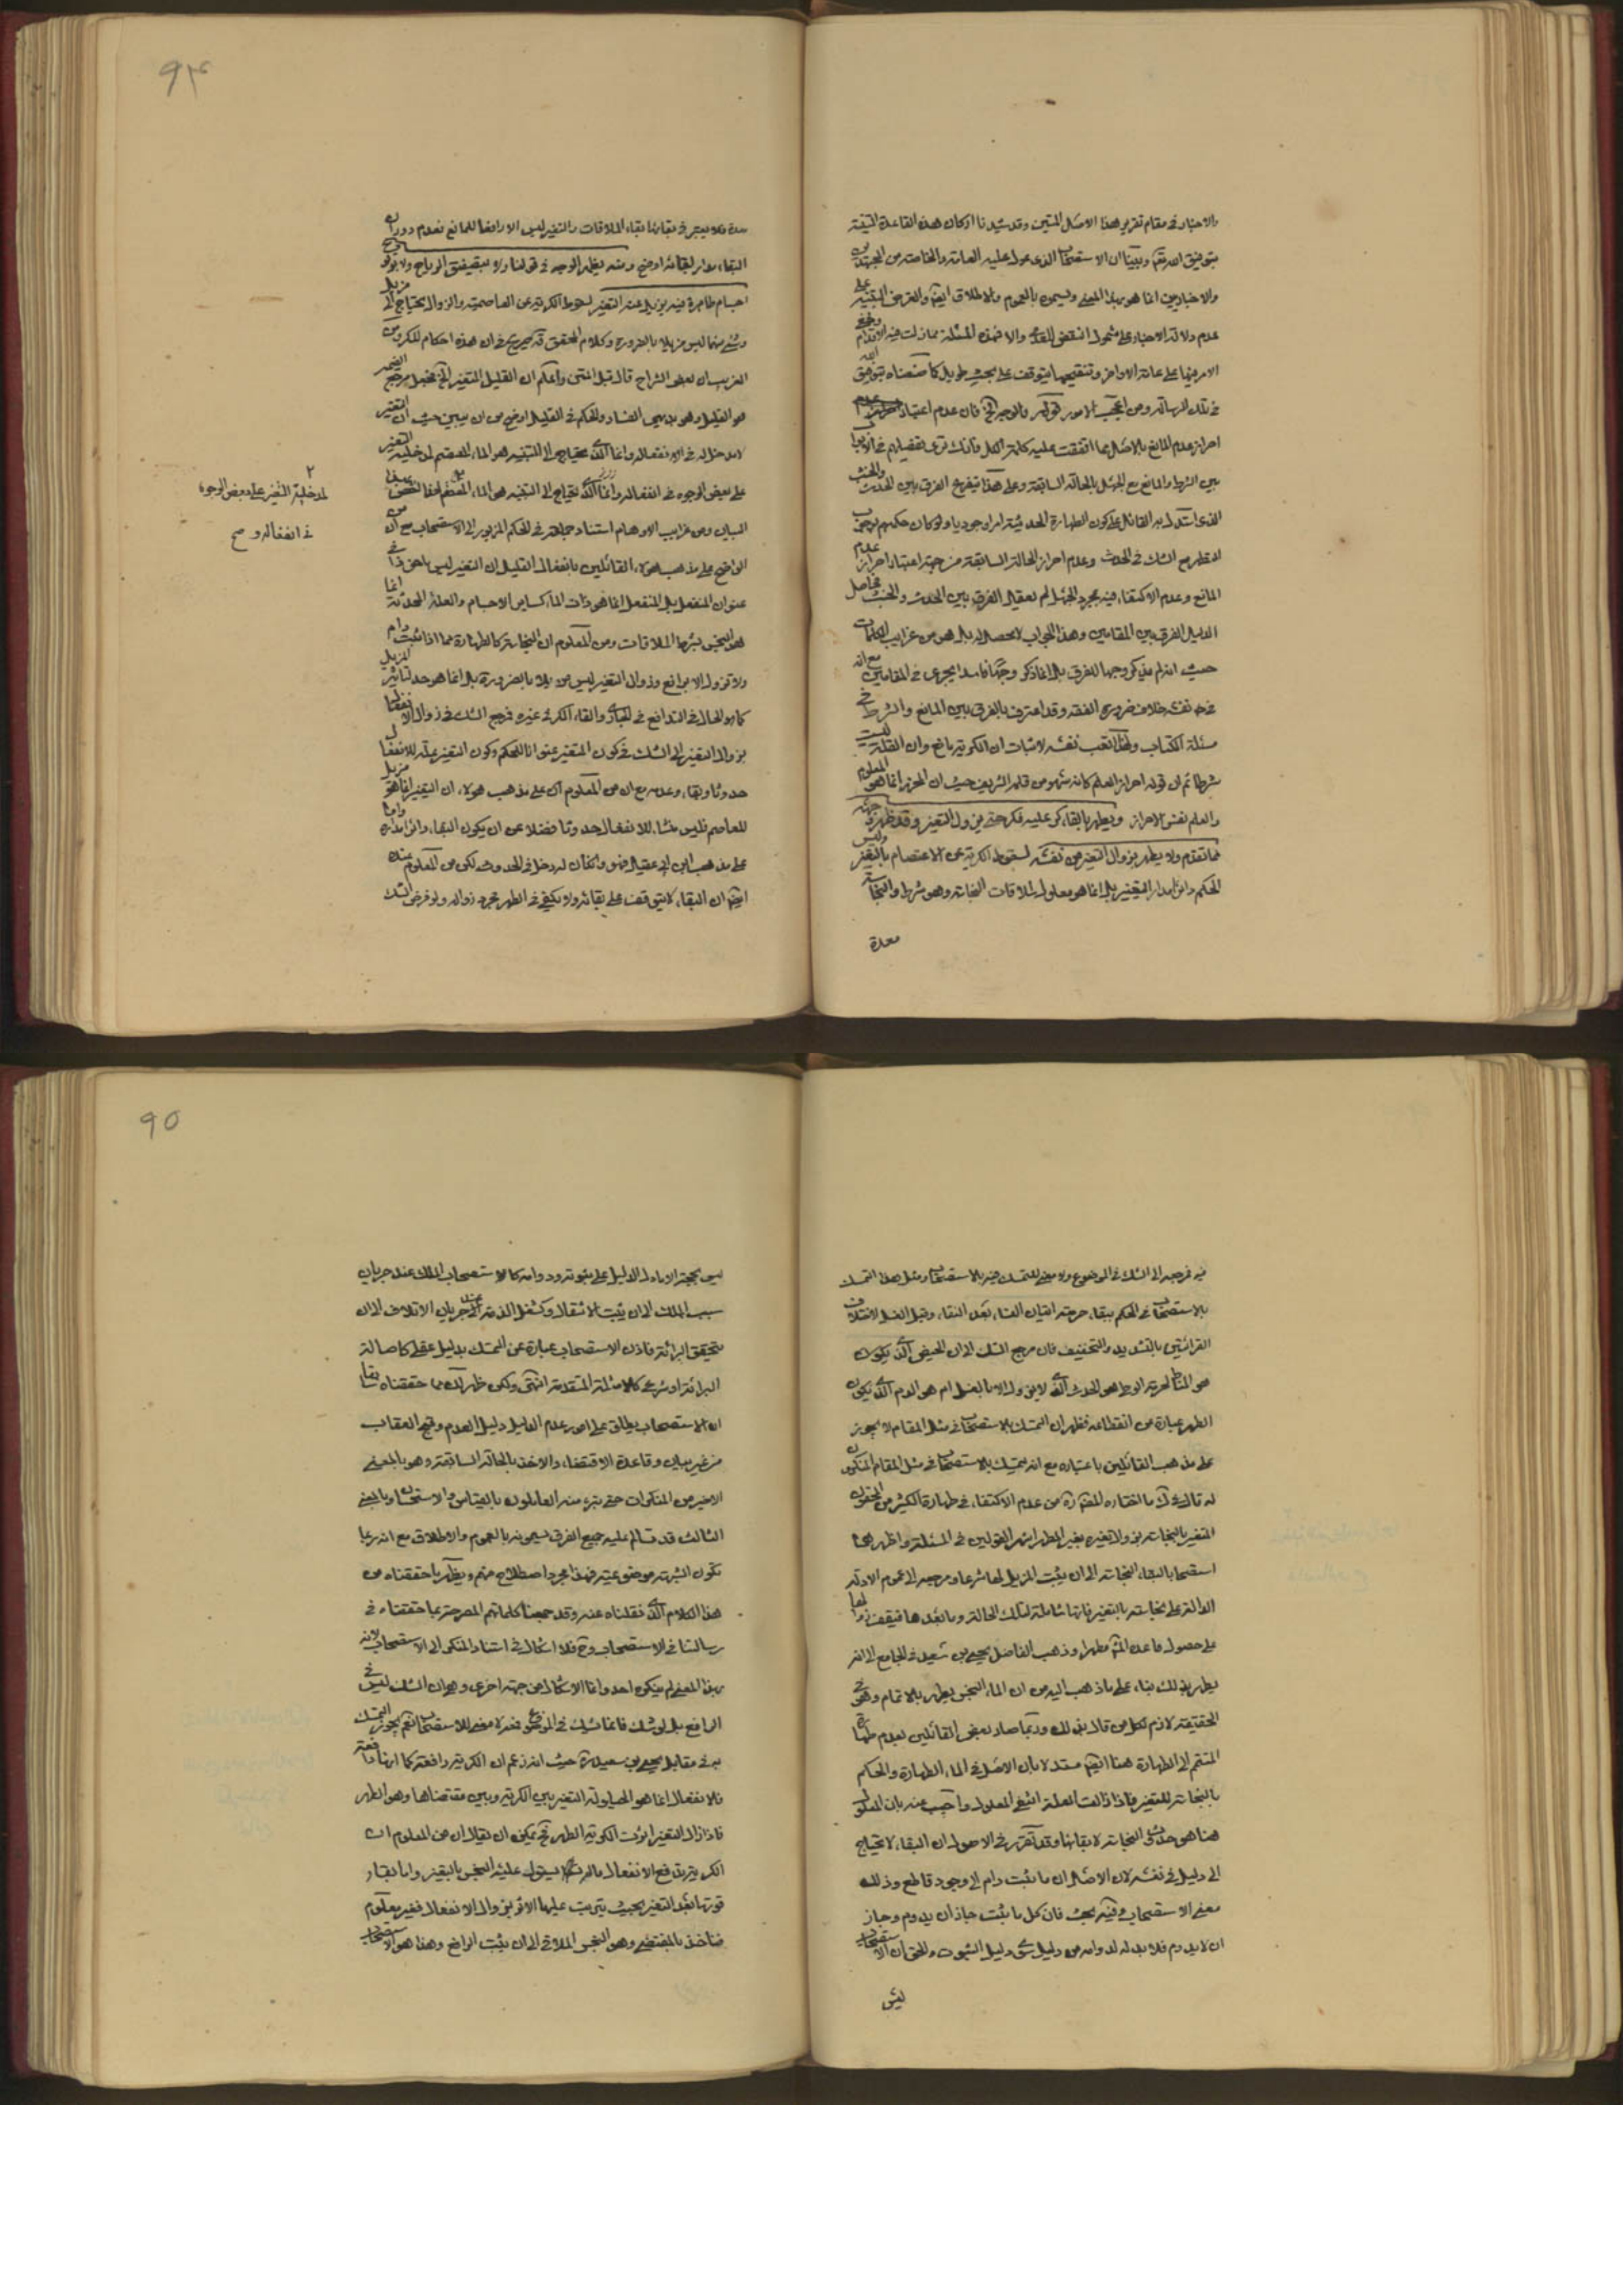 والاخبار في مقام تقرير هذا الاصل المتين وقد شيدنا اركان هذه القاعدة
بتوفيق الله وبينا ان الاستصحاب الذى عول عليه العامة والخاصة من المجتهدين
والاخباريين انما هو بهذا المعنى ويسمونه بالعموم والاطلاق ايضا والغرض التنبيه على
عدم دلالة الاخبار على شمول النقض والا فهذه المسئلة مما زلت فيه الاقدام
الامر فيها على عامة الاواخر وتنقيحها يتوقف على بحث طويل كما صنعناه بتوفيق الله
في تلك الرسالة ومن اعجب الامور قوله فان عدم اعتبار
احراز عدم المانع بالاصل مما اتفقت عليه كلمة الكل فانك ترى تفصيلهم في
بين الشرط والمانع مع الجهل بالحالة السابقة وعلى هذا يتفرع الفرق بين الحدث والخبث
الذى استدل به القائل على كون الطهارة الحدثية امرا وجوديا ولو كان حكمهم
التطهر مع الشك في الحدث وعدم احراز الحالة السابقة من جهة اعتبار احراز عدم
المانع وعدم الاكتفاء فيه بمجرد الجهل لم يعقل الفرق بين الحدث والخبث
الدليل الفرق بين المقامين وهذا الجواب لا محصل له بل هو من غرايب الكلمات
حيث انه لم يذكر وجها للفرق بل انما ذكر وجها فاسدا يجرى في المقامين مع انه
في نفسه خلاف ضرورة الفقه وقد اعترف بالفرق بين المانع والشرط في
مسئلة الكتاب ولهذا اتعب نفسه لاثبات ان الكرية مانع وان القلة ليست
شرطا ثم ان قوله احراز العلم كانه سهو من قلمه الشريف حيث ان المحرز انما هو المعلوم
والعلم نفس الاحراز ويطهر بالقاء كر عليه فكر حتى يزول التغير وقد ظهر وجهه
مما تقدم ولا يطهر بزوال التغير من نفسه لسقوط الكرية عن الاعتصام بالتغير وليس
الحكم دائرا مدار التغير بل انما هو معلول لملاقات النجاسة وهو شرط والنجاسة
معدة
۹۴
معدة فلا يعتبر في بقائها بقاء الملاقات والتغير ليس الا رافعا للمانع فعدم دوران
البقاء مدار بقائه اوضح ومنه يظهر الوجه في قولنا ولا بتصفيق الرياح ولا بوقوع
اجسام طاهرة فيه يزيل عنه التغير لسقوط الكرية عن العاصمية والزوال يحتاج الى مزيل
وشئ منها ليس مزيلا بالضرورة وكلام المحقق صريح في ان هذه احكام للكر ومن
الغريب ان بعض الشراح قال قبل المتن واعلم ان القليل المتغير مرجع الضمير
هو القليل وهو بديهى الفساد والحكم في القليل اوضح من ان يبين حيث ان التغير
لا مدخل له في الانفعال وانما الذى يحتاج الى التنبيه هو الماء المعتصم لمدخلية التغير
على بعض الوجوه في انفعاله وانما الذى يحتاج الى التنبيه هو الماء المعتصم
البيان ومن غرايب الاوهام استناد جماعة في الحكم المزبور الى الاستصحاب مع ان من
الواضح على مذهب هؤلاء القائلين بانفعال القليل ان التغير ليس ماخوذا في
عنوان المنفعل بل المنفعل انما هو ذات الماء كساير الاجسام والعلة المحدثة انما
هو النجس بشرط الملاقات ومن المعلوم ان النجاسة كالطهارة مما اذا ثبت دام
ولا تزول الا برافع وزوال التغير ليس مزيلا بالضرورة بل انما هو حد لتاثير المزيل
كما هو الحال في التدافع في الجارى والقاء الكر في غيره فمرجع الشك في زوال الانفعال
بزوال التغير الى الشك في كون المتغير عنوانا للحكم وكون التغير علة للانفعال
حدوثا وبقاء وعدمه مع ان من المعلوم ان على مذهب هؤلاء ان التغير انما هو مزيل
للعاصم فليس منشاء للانفعال حدوثا فضلا عن ان يكون البقاء دائرا مداره واما
على مذهب ابن ابى عقيل فهو وان كان له دخل في الحدوث لكن من المعلوم عنده
ايضا ان البقاء لا يتوقف على بقائه ولا يكفى في الطهر مجرد زواله ولو فرض الشك
لمدخلية التغير على بعض الوجوه
في انفعاله و صح
فيه فمرجعه الى الشك في الموضوع ولا معنى للتمسك فيه بالاستصحاب ومثل هذا التمسك
بالاستصحاب في الحكم ببقاء حرمة اتيان النساء بعد النقاء وقبل الغسل لاختلاف
القرائتين بالتشديد والتخفيف فان مرجع الشك الى ان الحيض الذى يكون
هو المناط لحرمة الوطى هو الحدث الذى لا يزول الا بالغسل ام هو الدم الذى يكون
الطهر عبارة عن انقطاعه فظهر ان التمسك بالاستصحاب في مثل المقام لا يجوز
على مذهب القائلين باعتباره مع انه يتمسك بالاستصحاب في مثل المقام المنكرون
له قال في ك ما اختاره المص ره من عدم الاكتفاء في طهارة الكثير من المحقون
المتغير بالنجاسة بزوال تغيره بغير المطهر اشهر القولين في المسئلة واظهرهما
استصحابا لبقاء النجاسة الى ان يثبت المزيل لها شرعا ومرجعه الى عموم الادلة
الدالة على نجاسته بالتغير فانها شاملة لتلك الحالة وما بعدها فيقف زوالها
على حصول ما عده الشارع مطهرا وذهب الفاضل يحيى بن سعيد في الجامع الى انه
يطهر بذلك بناء على ما ذهب اليه من ان الماء النجس يطهر بالاتمام وهو في
الحقيقة لازم لكل من قال بذلك وربما صار بعض القائلين بعدم طهارة
المتمم الى الطهارة هنا ايضا مستدلا بان الاصل في الماء الطهارة والحكم
بالنجاسة للتغير فاذا زالت العلة انتفى المعلول واجيب عنه بان المعلول
هنا هو حدوث النجاسة لا بقائها وقد تقرر في الاصول ان البقاء لا يحتاج
الى دليل في نفسه لان الاصل ان ما ثبت دام الى وجود قاطع وذلك
معنى الاستصحاب وفيه بحث فان كل ما ثبت جاز ان يدوم وجاز
ان لا يدوم فلا بد له لدوامه من دليل سوى دليل الثبوت والحق ان الاستصحاب
ليس
۹۵
ليس بحجة الا ما دل الدليل على ثبوته ودوامه كالاستصحاب الملك عند جريان
سبب الملك الى ان يثبت الانتقال وكشغل الذمة عند جريان الاتلاف الى ان
يتحقق البرائة فاذن الاستصحاب عبارة عن التمسك بدليل عقلى كاصالة
البرائة او شرعى كالامثلة المتقدمة انتهى ولكن ظهر لك مما حققناه سابقا
ان الاستصحاب يطلق على امور عدم الدليل دليل العدم وقبح العقاب
من غير بيان وقاعدة الاقتضاء والاخذ بالحالة السابقة وهو بالمعنى
الاخير من المنكرات حتى تبرء منه العاملون بالقياس والاستحسان وبالمعنى
الثالث قد تسالم عليه جميع الفرق يسمونه بالعموم والاطلاق مع انه ربما
تكون الشبهة موضوعية فهذا مجرد اصطلاح منهم ويظهر ما حققناه من
هذا الكلام الذى نقلناه عنه وقد جمعنا كلماتهم المصرحة بما حققناه في
رسالتنا في الاستصحاب وح فلا اشكال في استناد المنكر الى الاستصحاب لانه
بهذا المعنى لم ينكره احد وانما الاشكال من جهة اخرى وهو ان الشك ليس في
الرافع بل لو شك فانما شك في الموضوع فعده لا معنى للاستصحاب نعم يجوز التمسك
به في مقابل يحيى بن سعيد ره حيث انه زعم ان الكرية رافعة كما انها دافعة
فلا نفعال انما هو الحيلولة التغير بين الكرية وبين مقتضاها وهو الطهر
فاذا زال التغير اثرت الكرية الطهر فح يمكن ان يقال ان من المعلوم ان
الكرية تدفع الانفعال مالم يستول عليه النجس بالتغير واما بقاء
قوتها بعد التغير بحيث يترتب عليها الاثر بزوال الانفعال فغير معلوم
فناخذ بالمقتضى وهو النجس الملاقى الى ان يثبت الرافع وهذا هو الاستصحاب